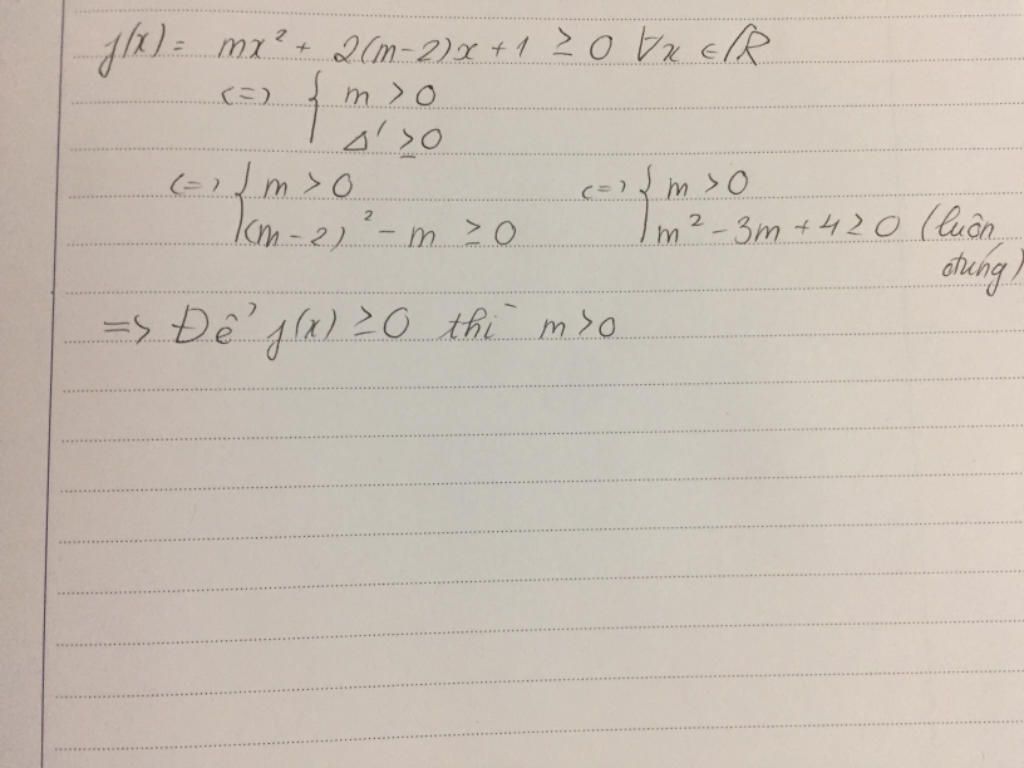 f(x) = mx² + 2(m-2)x + 1 ≥ 0 ∀x ∈ ℝ
<=> { m > 0
Δ' ≥ 0
<=> { m > 0 <=> { m > 0
(m-2)² - m ≥ 0 m² - 3m + 4 ≥ 0 (luôn
đúng)
=> Để f(x) ≥ 0 thì m > 0